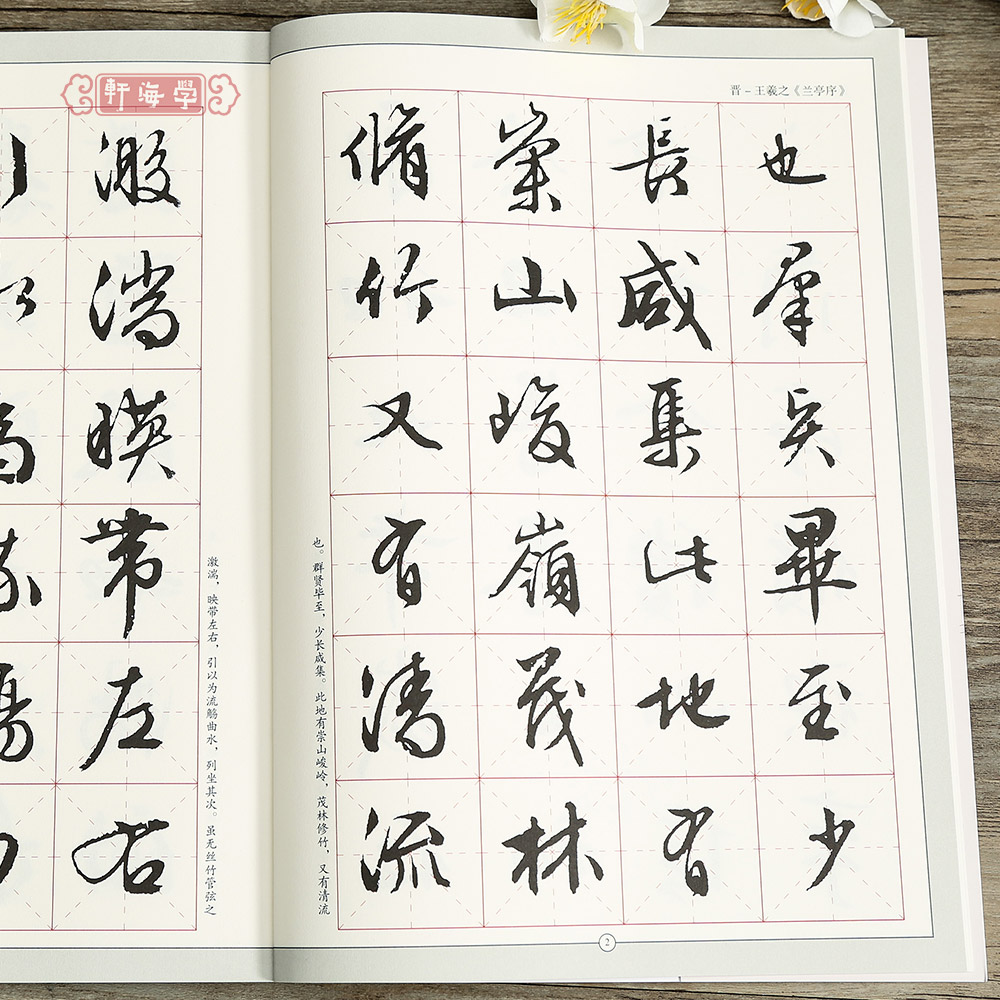 學海軒
晋－王羲之《兰亭序》
也羣賢畢至少
長咸集此地有
崇山峻嶺茂林
脩竹又有清流
也。群贤毕至，少长咸集。此地有崇山峻岭，茂林修竹，又有清流
2
激湍暎帶左右
激湍，映带左右，引以为流觞曲水，列坐其次。虽无丝竹管弦之